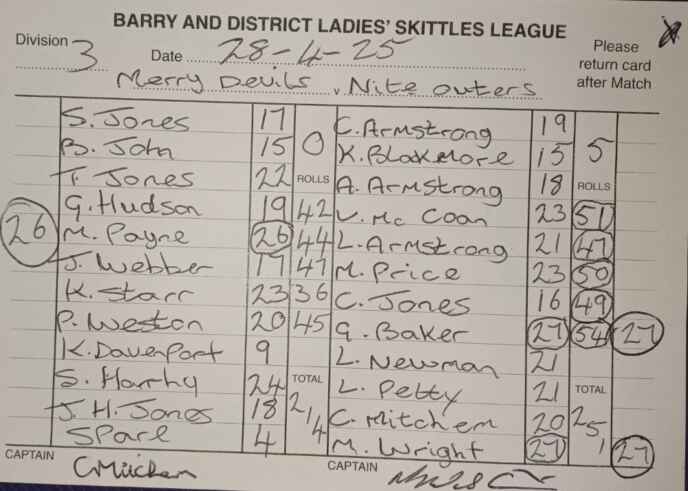 BARRY AND DISTRICT LADIES' SKITTLES LEAGUE
Division 3 Date 28-4-25
Please return card after Match
Merry Devils v Nite outers
S. Jones 17 C. Armstrong 19
B. John 15 0 K. Blakmore 15 5
F Jones 22 ROLLS A. Armstrong 18 ROLLS
G. Hudson 19 42 V. Mc Coan 23 51
26 M. Payne 26 44 L. Armstrong 21 47
J. Webber 17 47 M. Price 23 50
K. Starr 23 36 C. Jones 16 49
P. Weston 20 45 G. Baker 27 54 27
K. Davenport 9 L. Newman 21
S. Harthy 24 TOTAL L. Petty 21 TOTAL
J. H. Jones 18 214 C. Mitchem 20 251
Spare 4 M. Wright 27 27
CAPTAIN CAPTAIN